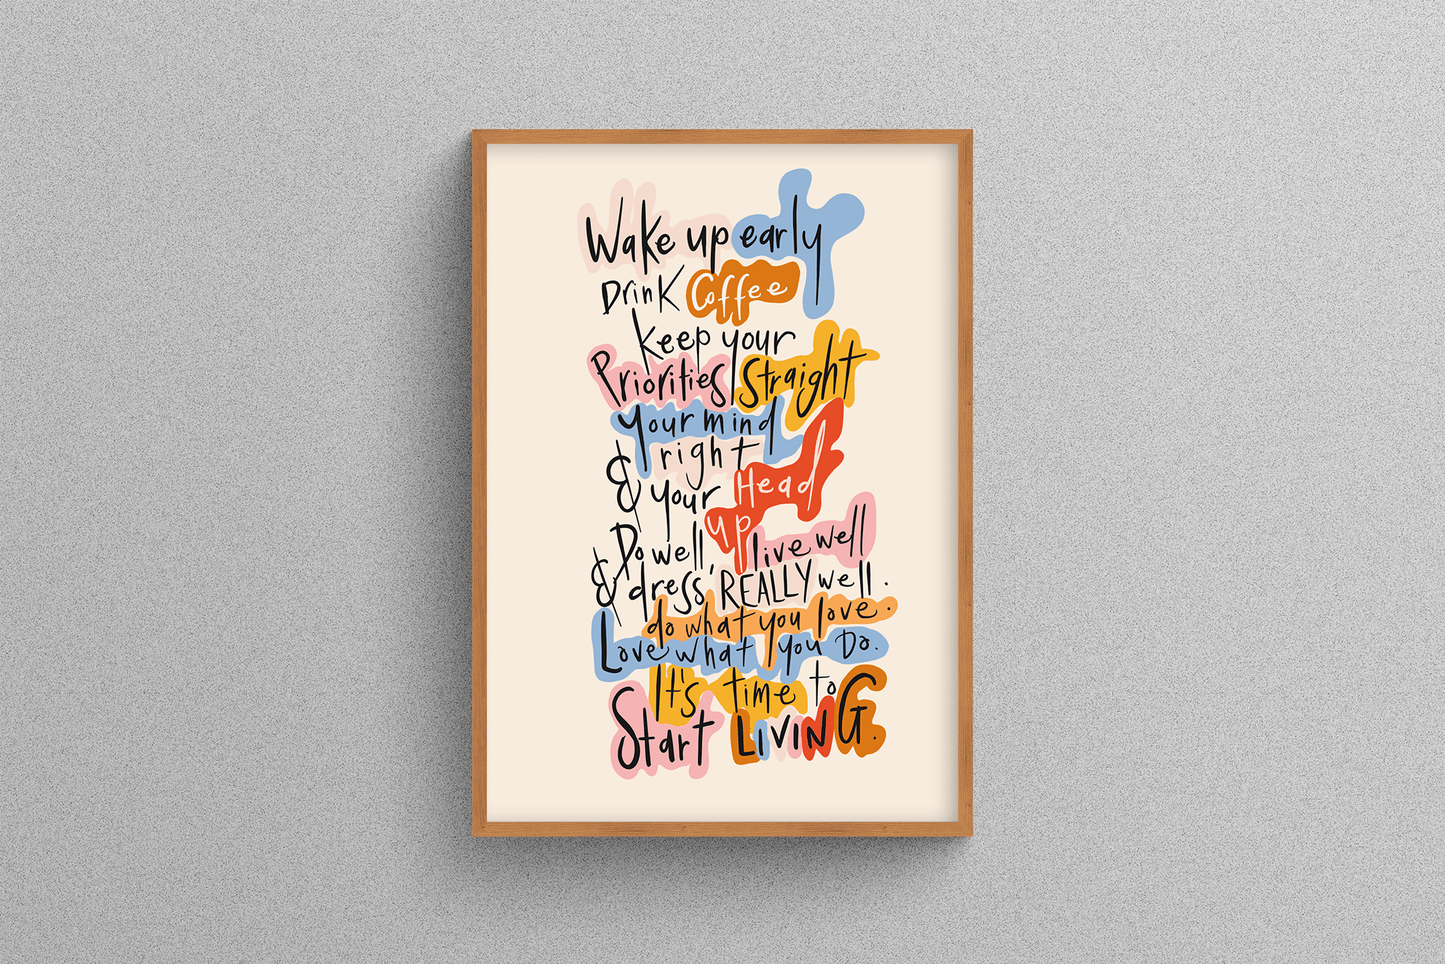 Wake up early
Drink Coffee
Keep your
Priorities Straight
your mind
right
& your Head
up
Do well, live well
& dress REALLY well.
do what you love.
Love what you Do.
It's time to
Start LIVING.